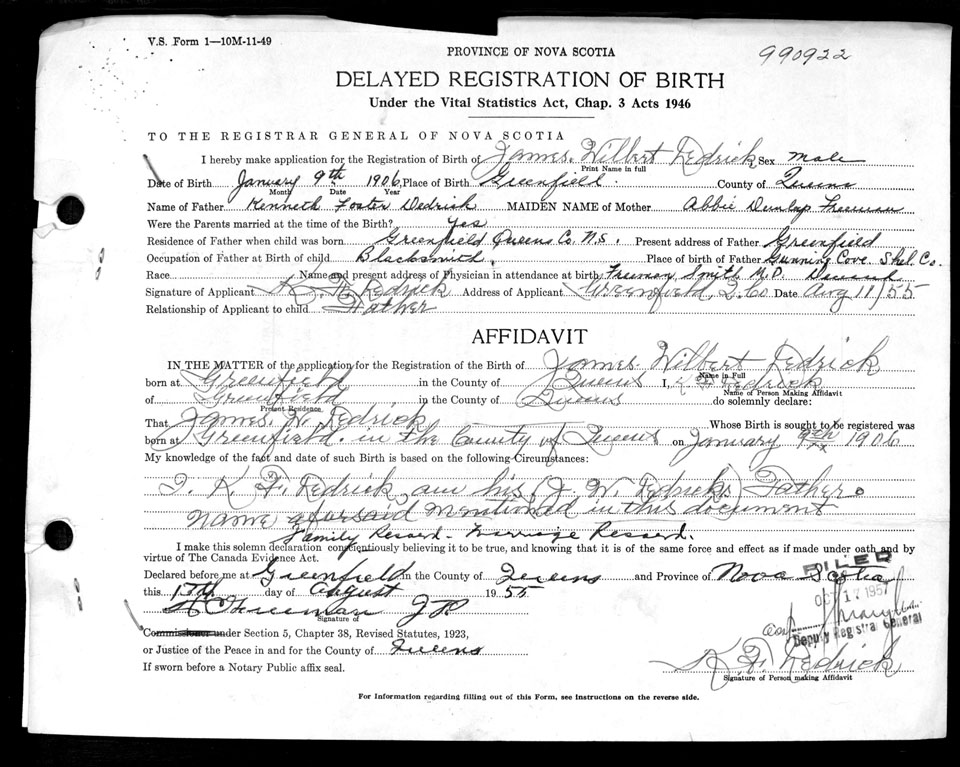 V.S. Form 1—10M-11-49
990922
PROVINCE OF NOVA SCOTIA
DELAYED REGISTRATION OF BIRTH
Under the Vital Statistics Act, Chap. 3 Acts 1946
TO THE REGISTRAR GENERAL OF NOVA SCOTIA
I hereby make application for the Registration of Birth of James. Wilbert Dedrick Sex male
Print Name in full
Date of Birth January 9th 1906 Place of Birth Greenfield. County of Queens
Month Date Year
Name of Father Kenneth Foster Dedrick MAIDEN NAME of Mother Abbie Dunlap Freeman
Were the Parents married at the time of the Birth? Yes
Residence of Father when child was born Greenfield Queens Co. N.S. Present address of Father Greenfield
Occupation of Father at Birth of child Blacksmith. Place of birth of Father Gunning Cove. Shel. Co.
Race Name and present address of Physician in attendance at birth Freeman Smith M.D. Deceased
Signature of Applicant K. F. Dedrick Address of Applicant Greenfield, Q. Co Date Aug 11/55
Relationship of Applicant to child Father
AFFIDAVIT
IN THE MATTER of the application for the Registration of Birth of James. Wilbert Dedrick
Name in Full
born at Greenfield in the County of Queens I, K F Dedrick
Name of Person Making Affidavit
of Greenfield in the County of Queens do solemnly declare:
Present Residence
That James. W. Dedrick Whose Birth is sought to be registered was
born at Greenfield. in the County of Queens on January 9th 1906
My knowledge of the fact and date of such Birth is based on the following Circumstances:
I. K. F. Dedrick, am his (J. W. Dedricks) Father.
Name aforsaid mentioned in this document
Family Record - Marriage Record.
I make this solemn declaration conscientiously believing it to be true, and knowing that it is of the same force and effect as if made under oath and by
virtue of The Canada Evidence Act.
FILED
Declared before me at Greenfield in the County of Queens and Province of Nova Scotia
this 17th day of August 1955
OCT 17 1957
Freeman J P
Signature of
Deputy Registrar General
Commissioner under Section 5, Chapter 38, Revised Statutes, 1923,
or Justice of the Peace in and for the County of Queens
K. F. Dedrick
If sworn before a Notary Public affix seal.
Signature of Person making Affidavit
For Information regarding filling out of this Form, see instructions on the reverse side.